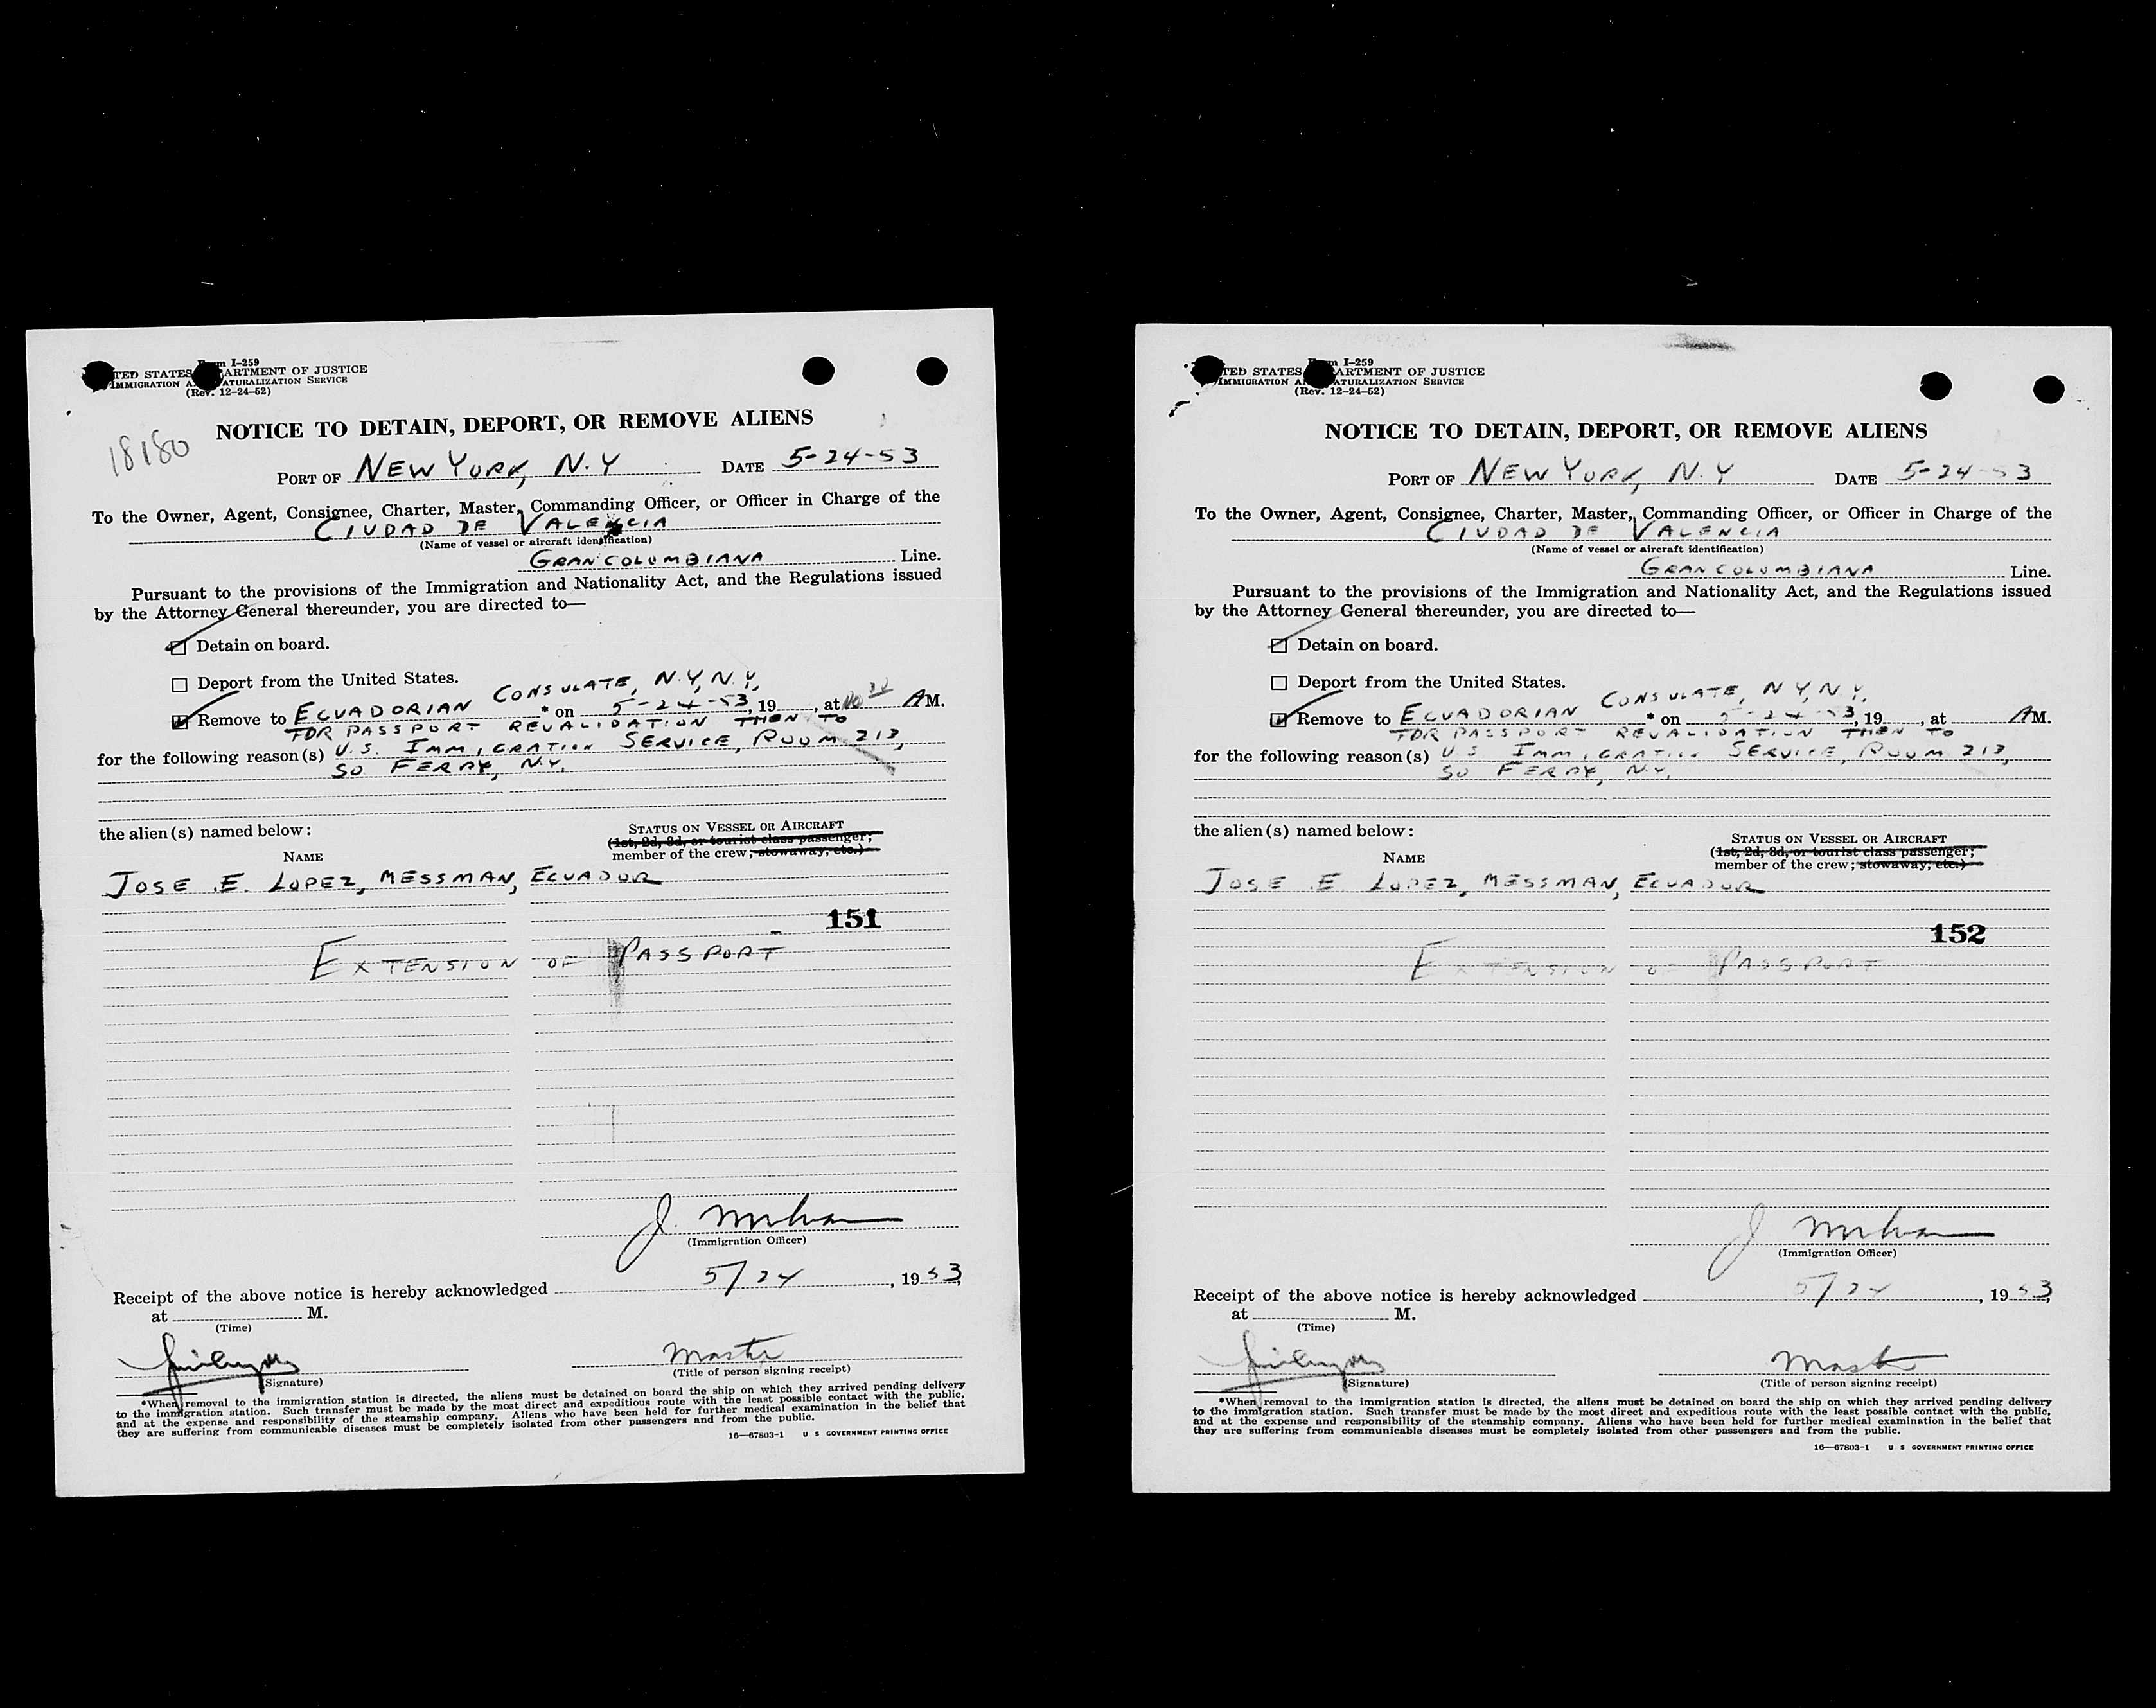 Form I-259
UNITED STATES DEPARTMENT OF JUSTICE
IMMIGRATION AND NATURALIZATION SERVICE
(Rev. 12-24-52)
NOTICE TO DETAIN, DEPORT, OR REMOVE ALIENS
18180
PORT OF NEW YORK, N.Y DATE 5-24-53
To the Owner, Agent, Consignee, Charter, Master, Commanding Officer, or Officer in Charge of the
CIUDAD DE VALENCIA
(Name of vessel or aircraft identification)
GRANCOLUMBIANA Line.
Pursuant to the provisions of the Immigration and Nationality Act, and the Regulations issued
by the Attorney General thereunder, you are directed to—
Detain on board.
Deport from the United States.
CONSULATE, N.Y, N.Y,
Remove to ECUADORIAN * on 5-24-53, 19 , at AM.
FOR PASSPORT REVALIDATION THEN TO
for the following reason(s) U.S. IMMIGRATION SERVICE, ROOM 213,
SO FERRY, N.Y.
the alien(s) named below:
STATUS ON VESSEL OR AIRCRAFT
(1st, 2d, 3d, or tourist class passenger;
member of the crew; stowaway, etc.)
NAME
JOSE E. LOPEZ, MESSMAN, ECUADOR
151
EXTENSION OF PASSPORT
J.
(Immigration Officer)
Receipt of the above notice is hereby acknowledged 5/24, 1953,
at M.
(Time)
Master
(Signature) (Title of person signing receipt)
*When removal to the immigration station is directed, the aliens must be detained on board the ship on which they arrived pending delivery
to the immigration station. Such transfer must be made by the most direct and expeditious route with the least possible contact with the public,
and at the expense and responsibility of the steamship company. Aliens who have been held for further medical examination in the belief that
they are suffering from communicable diseases must be completely isolated from other passengers and from the public.
16—67803-1 U S GOVERNMENT PRINTING OFFICE
Form I-259
UNITED STATES DEPARTMENT OF JUSTICE
IMMIGRATION AND NATURALIZATION SERVICE
(Rev. 12-24-52)
NOTICE TO DETAIN, DEPORT, OR REMOVE ALIENS
PORT OF NEW YORK, N.Y DATE 5-24-53
To the Owner, Agent, Consignee, Charter, Master, Commanding Officer, or Officer in Charge of the
CIUDAD DE VALENCIA
(Name of vessel or aircraft identification)
GRANCOLUMBIANA Line.
Pursuant to the provisions of the Immigration and Nationality Act, and the Regulations issued
by the Attorney General thereunder, you are directed to—
Detain on board.
Deport from the United States.
CONSULATE, N.Y, N.Y.
Remove to ECUADORIAN * on 5-24-53, 19 , at AM.
FOR PASSPORT REVALIDATION THEN TO
for the following reason(s) U.S IMMIGRATION SERVICE, ROOM 213,
SO FERRY, N.Y.
the alien(s) named below:
STATUS ON VESSEL OR AIRCRAFT
(1st, 2d, 3d, or tourist class passenger;
member of the crew; stowaway, etc.)
NAME
JOSE E LOPEZ, MESSMAN, ECUADOR
152
EXTENSION OF PASSPORT
J
(Immigration Officer)
Receipt of the above notice is hereby acknowledged 5/24, 1953,
at M.
(Time)
Master
(Signature) (Title of person signing receipt)
*When removal to the immigration station is directed, the aliens must be detained on board the ship on which they arrived pending delivery
to the immigration station. Such transfer must be made by the most direct and expeditious route with the least possible contact with the public,
and at the expense and responsibility of the steamship company. Aliens who have been held for further medical examination in the belief that
they are suffering from communicable diseases must be completely isolated from other passengers and from the public.
16—67803-1 U S GOVERNMENT PRINTING OFFICE